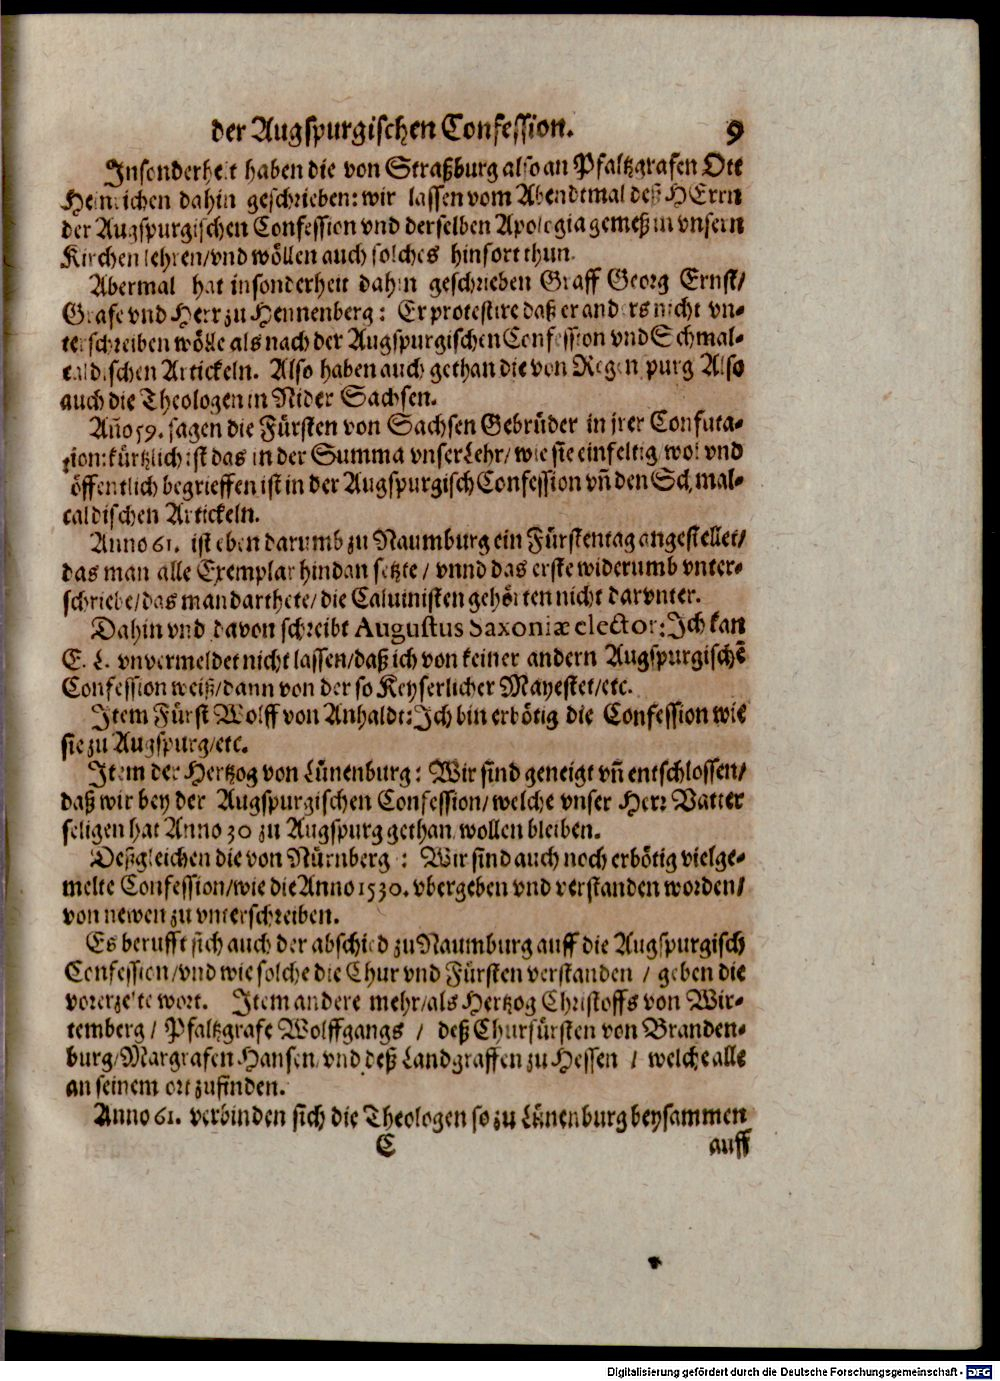 der Augspurgischen Confession. 9
Insonderheit haben die von Straßburg also an Pfaltzgrafen Ott
Heinrichen dahin geschrieben: wir lassen vom Abendtmal deß HErrn
der Augspurgischen Confession vnd derselben Apologia gemeß in vnsern
Kirchen lehren/vnd wöllen auch solches hinfort thun.
Abermal hat insonderheit dahin geschrieben Graff Georg Ernst/
Grafe vnd Herr zu Hennenberg: Er protestire daß er anders nicht vn-
terschreiben wölle als nach der Augspurgischen Confession vnd Schmal-
caldischen Artickeln. Also haben auch gethan die von Regenspurg Also
auch die Theologen in Nider Sachsen.
Año 59. sagen die Fürsten von Sachsen Gebrüder in jrer Confuta-
tion: kürtzlich ist das in der Summa vnser Lehr/ wie sie einfeltig/ wol vnd
öffentlich begrieffen ist in der Augspurgisch Confession vñ den Schmal-
caldischen Artickeln.
Anno 61. ist eben darumb zu Naumburg ein Fürstentag angestellet/
das man alle Exemplar hindan setzte / vnnd das erste widerumb vnter-
schriebe/das man darthete/die Caluinisten gehörten nicht darvnter.
Dahin vnd davon schreibt Augustus Saxoniæ elector: Ich kan
E. L. vnvermeldet nicht lassen/daß ich von keiner andern Augspurgischē
Confession weiß/dann von der so Keyserlicher Mayestet/etc.
Item Fürst Wolff von Anhaldt: Ich bin erbötig die Confession wie
sie zu Augspurg/etc.
Item der Hertzog von Lünenburg: Wir sind geneigt vñ entschlossen/
daß wir bey der Augspurgischen Confession/welche vnser Herr Vatter
seligen hat Anno 30 zu Augspurg gethan/wollen bleiben.
Deßgleichen die von Nürnberg : Wir sind auch noch erbötig vielge-
melte Confession/wie die Anno 1530. vbergeben vnd verstanden worden/
von newen zu vnterschreiben.
Es berufft sich auch der abschied zu Naumburg auff die Augspurgisch
Confession/vnd wie solche die Chur vnd Fürsten verstanden / geben die
vorerzelte wort. Item andere mehr/als Hertzog Christoffs von Wir-
temberg / Pfaltzgrafe Wolffgangs / deß Churfürsten von Branden-
burg/Margrafen Hansen/vnd deß Landgraffen zu Hessen / welche alle
an seinem ort zufinden.
Anno 61. verbinden sich die Theologen so zu Lünenburg beysammen
C auff
Digitalisierung gefördert durch die Deutsche Forschungsgemeinschaft - DFG